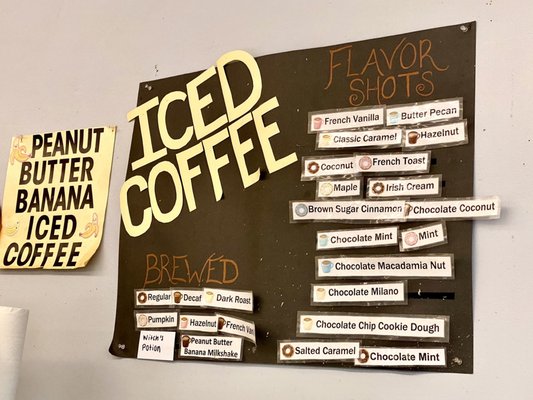 PEANUT
BUTTER
BANANA
ICED
COFFEE
ICED
COFFEE
BREWED
Regular Decaf Dark Roast
Pumpkin Hazelnut French Van
Witch's
Potion
Peanut Butter
Banana Milkshake
FLAVOR
SHOTS
French Vanilla Butter Pecan
Classic Caramel Hazelnut
Coconut French Toast
Maple Irish Cream
Brown Sugar Cinnamon Chocolate Coconut
Chocolate Mint Mint
Chocolate Macadamia Nut
Chocolate Milano
Chocolate Chip Cookie Dough
Salted Caramel Chocolate Mint